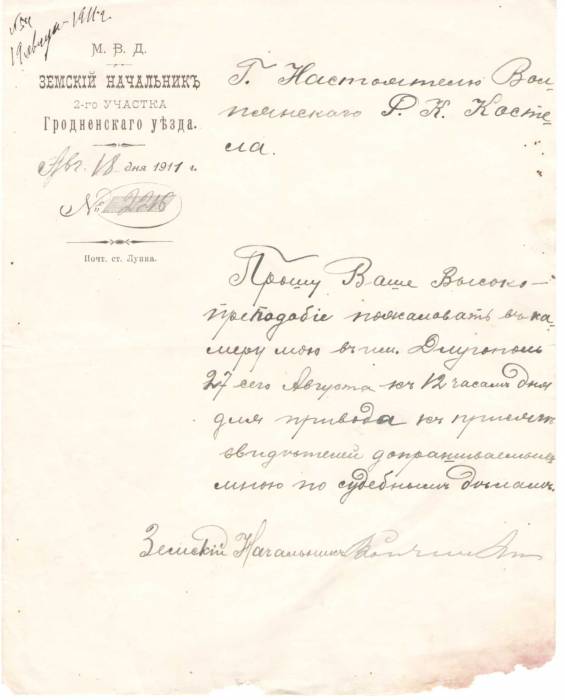 №54
19 августа 1911 г.
М. В. Д.
ЗЕМСКІЙ НАЧАЛЬНИКЪ
2-го УЧАСТКА
Гродненскаго уѣзда.
Авг. 18 дня 1911 г.
№ 2216
Почт. ст. Лунна.
Г. Настоятелю Вол-
пянскаго Р. К. Косте-
ла.
Прошу Ваше Высоко-
преподобіе пожаловать въ ка-
меру мою въ им. Длугополь
27 сего Августа къ 12 часамъ дня
для привода къ присягѣ
свидѣтелей допрашиваемыхъ
мною по судебнымъ дѣламъ.
Земскій Начальникъ